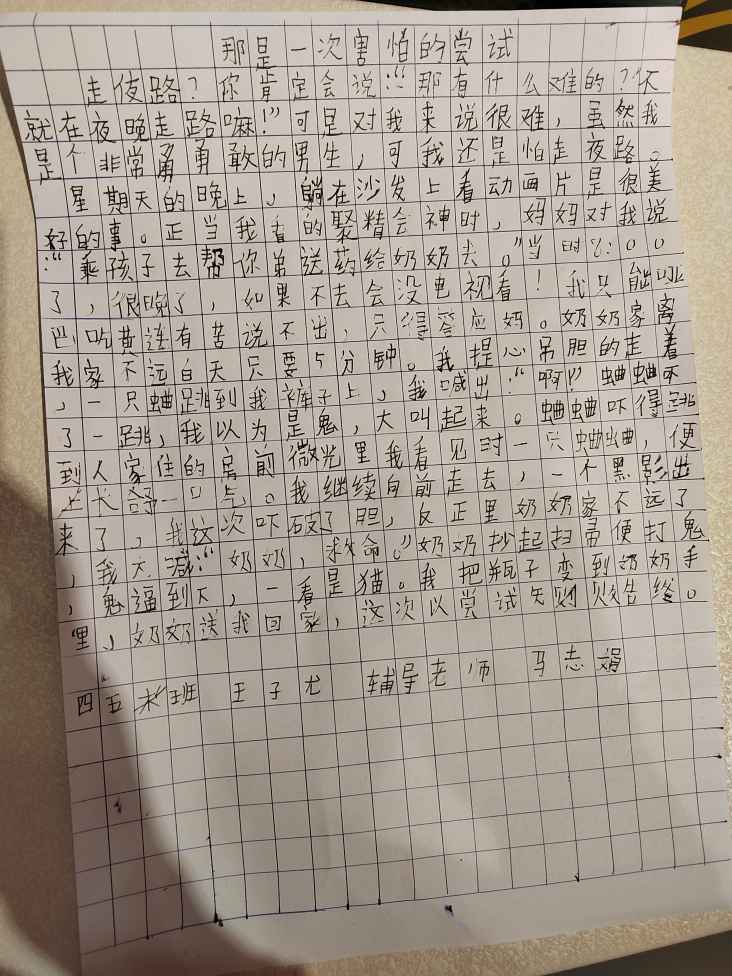 那是一次害怕的尝试
走夜路？你肯定会说：“那有什么难的？不
就在夜晚走路嘛！”可是对我来说很难，虽然我
是个非常勇勇敢的男生，可我还是怕走夜路。
星期天的晚上，躺在沙发上看动画片是很美
好的事。正当我看的聚精会神时，妈妈对我说
：“乘孩子去帮你弟送药给奶奶去。”当时
了，很晚了，如果不去会没电视看！我只能哑
巴吃黄连有苦说不出，只得答应妈。奶奶家离
我家不远白天只要5分钟。我提心吊胆的走着
，一只蛐跳到我裤子上，我喊出：“啊！”蛐蛐吓
了一跳，我以为是鬼，大叫起来。蛐蛐吓得跳
到人家住的房前微光里我看见时一只蛐蛐，便
长舒一口气。我继续向前走去，一个黑影出
来了，我这次吓破了胆，反正里奶奶家不远了
，我大喊：“奶奶，救命。”奶奶抄起扫帚便打鬼
，鬼逼到不，一看是猫。我把瓶子变到奶奶手
里，奶奶送我回家，这次以尝试失败告终。
四五班 王子尤 辅导老师 马志娟